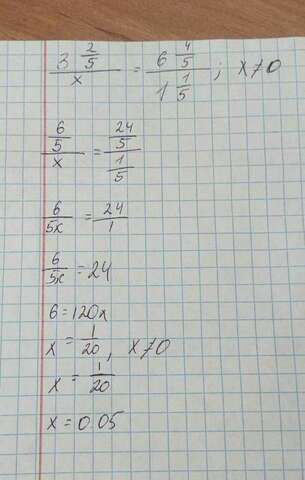 3 2/5 / x = 6 4/5 / 1 1/5 ; x≠0
6/5 / x = 24/5 / 1/5
6/5x = 24/1
6/5x = 24
6 = 120x
x = 1/20, x≠0
x = 1/20
x = 0.05